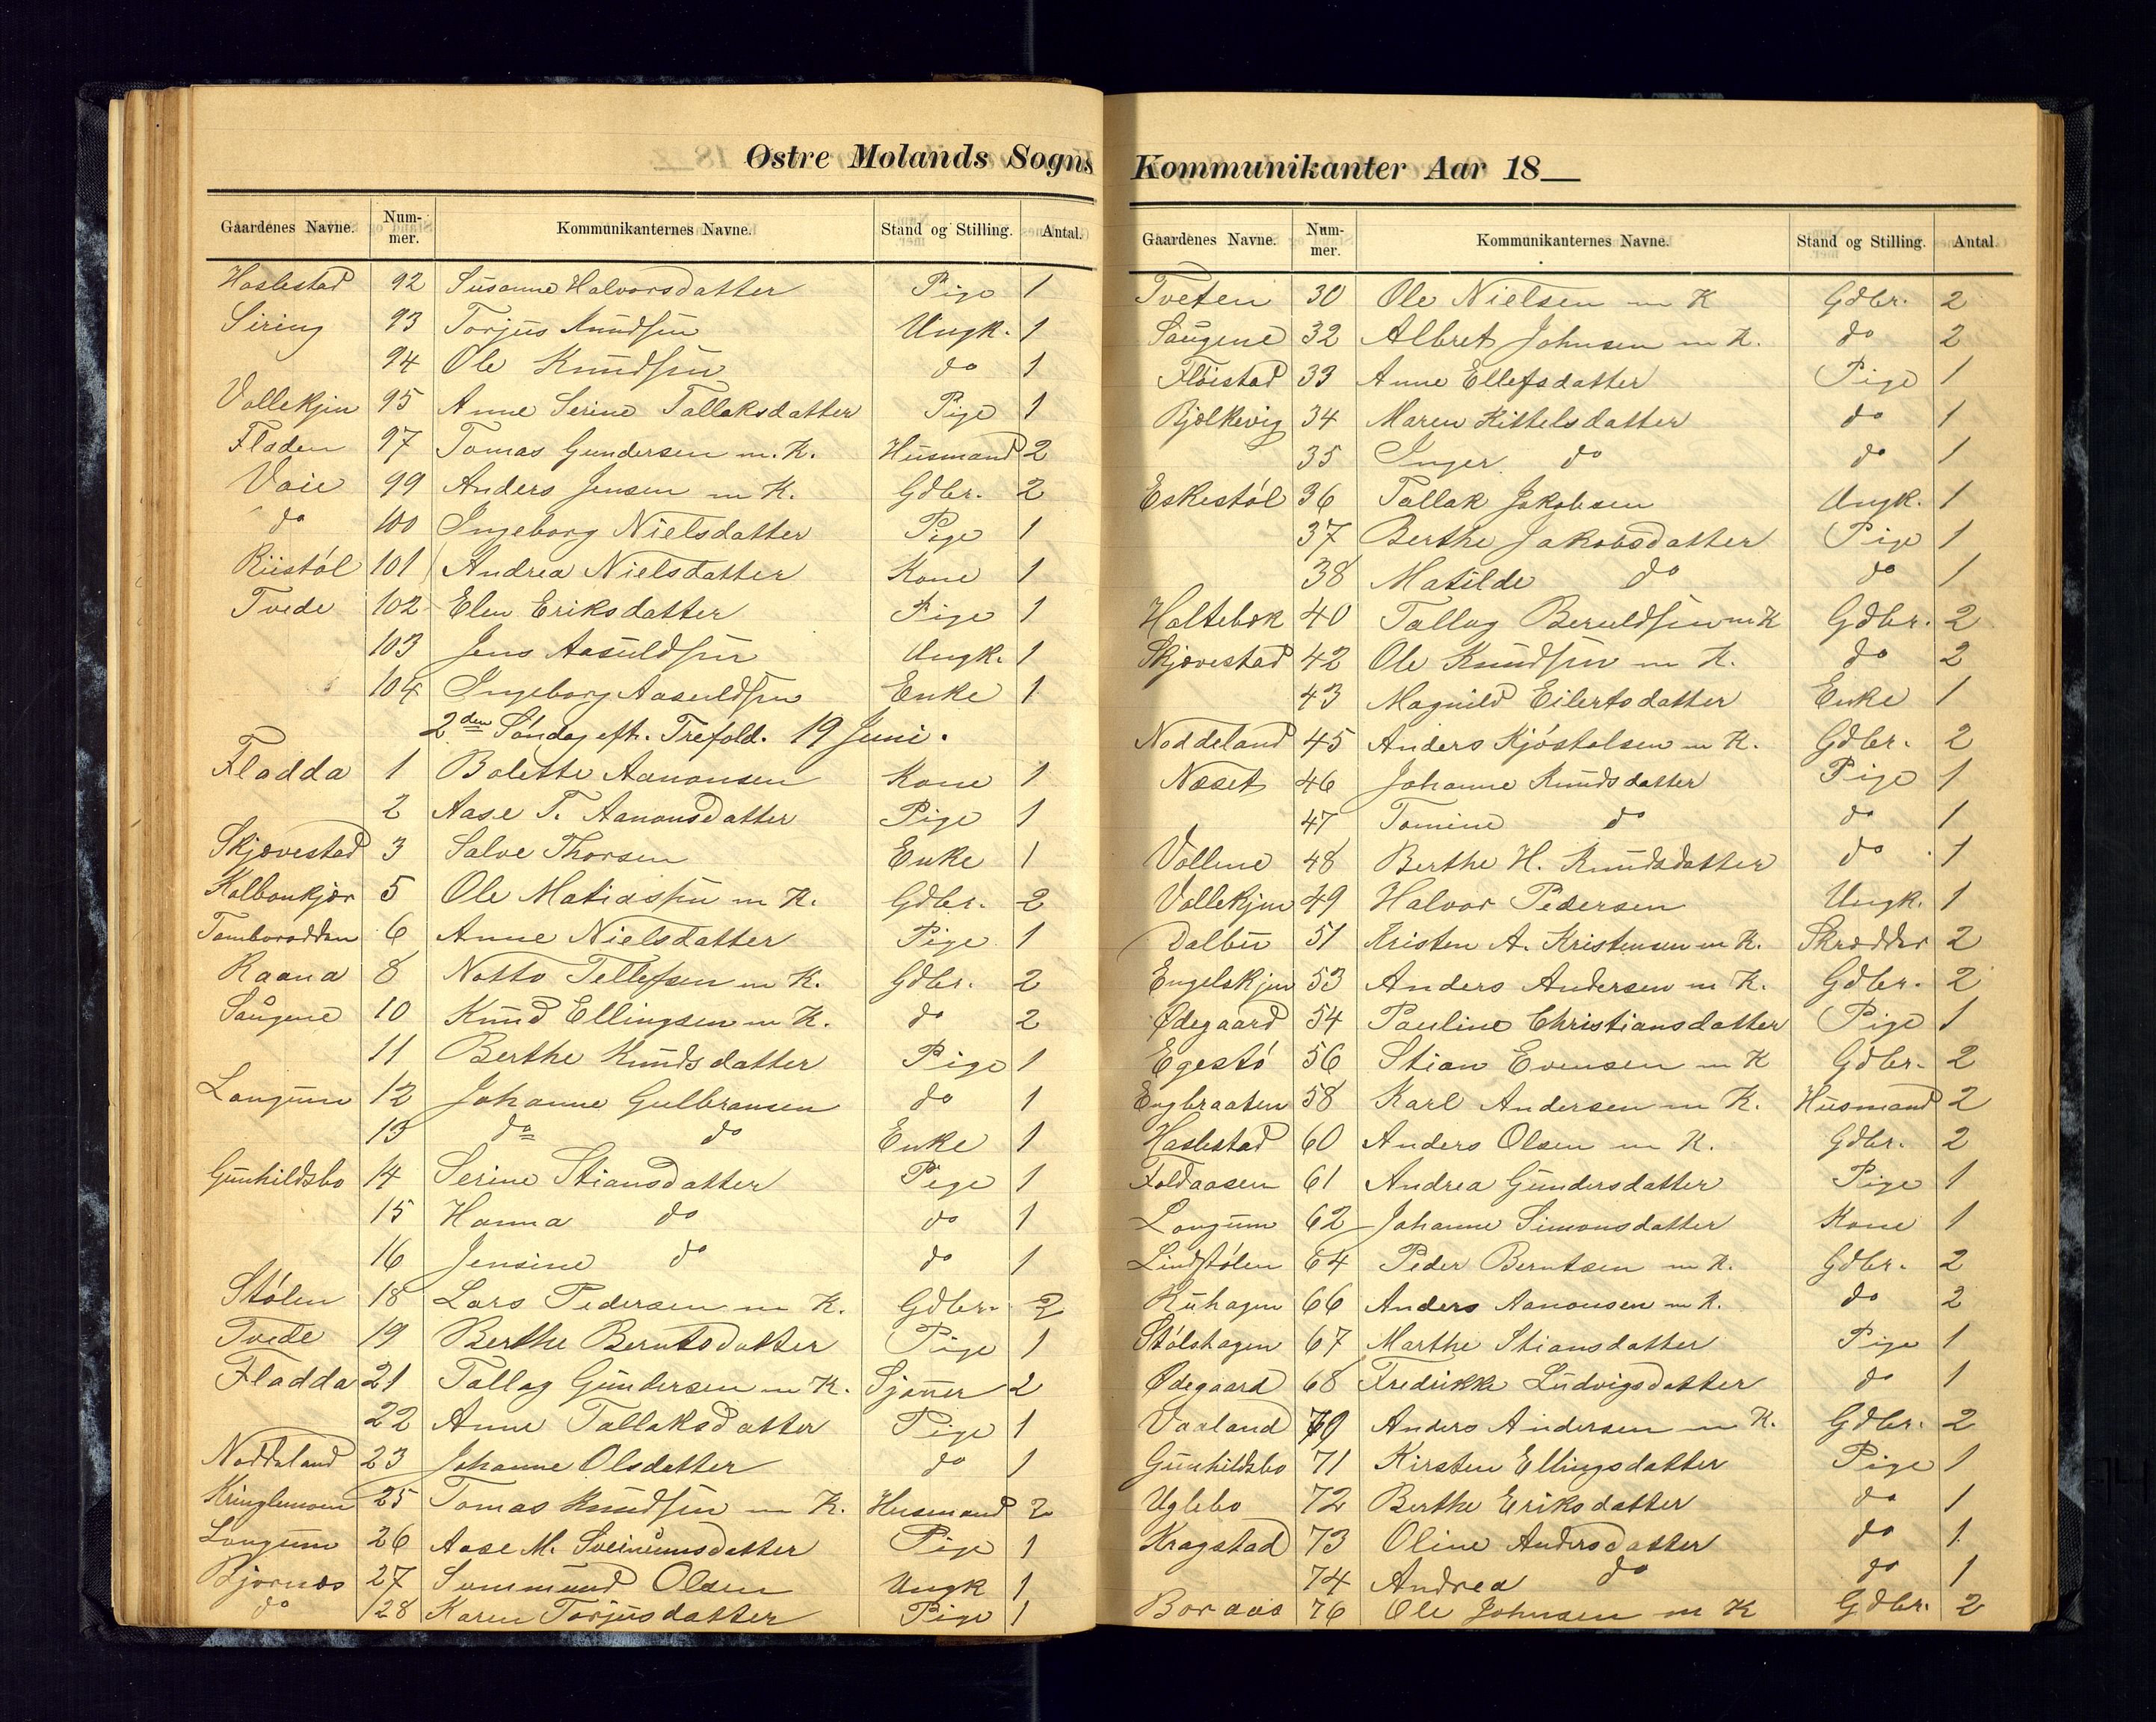 Østre Molands Sogns
Gaardenes Navne. Nummer. Kommunikanternes Navne. Stand og Stilling. Antal.
Haslestad 92 Susanne Halvorsdatter Pige 1
Siring 93 Torjus Knudsen Ungk. 1
94 Ole Knudsen do 1
Vollekjin 95 Anne Serine Tallaksdatter Pige 1
Fladen 97 Tomas Gundersen m. K. Husmand 2
Voie 99 Anders Jensen m K. Gdbr. 2
do 100 Ingeborg Nielsdatter Pige 1
Riistøl 101 Andrea Nielsdatter Kone 1
Tvede 102 Elen Eriksdatter Pige 1
103 Jens Aasuldsen Ungk. 1
104 Ingeborg Aasuldsen Enke 1
2den Søndag eft. Trefold. 19 Juni.
Fladda 1 Bolette Aanonsen Kone 1
2 Aase T. Aanonsdatter Pige 1
Skjævestad 3 Salve Thorsen Enke 1
Kalbonkjær 5 Ole Matiassen m K. Gdbr. 2
Tomborodden 6 Anne Nielsdatter Pige 1
Raana 8 Notto Tellefsen m K. Gdbr. 2
Saugene 10 Knud Ellingsen m K. do 2
11 Berthe Knudsdatter Pige 1
Longum 12 Johanne Gulbransen do 1
13 do do Enke 1
Gunhildsbo 14 Serine Stiansdatter Pige 1
15 Hanna do do 1
16 Jensine do do 1
Stølen 18 Lars Pedersen m K. Gdbr. 2
Tvede 19 Berthe Berntsdatter Pige 1
Fladda 21 Tallag Gundersen m K. Sjømer 2
22 Anne Tallaksdatter Pige 1
Noddeland 23 Johanne Olsdatter do 1
Kringlemoen 25 Tomas Knudsen m K. Husmand 2
Longum 26 Aase M. Sveinumsdatter Pige 1
Bjørnes 27 Summund Olsen Ungk 1
do 28 Karen Torjusdatter Pige 1
Kommunikanter Aar 18__
Gaardenes Navne. Nummer. Kommunikanternes Navne. Stand og Stilling. Antal.
Tveten 30 Ole Nielsen m K Gdbr. 2
Saugene 32 Albret Johnsen m K. do 2
Fløistad 33 Anne Ellefsdatter Pige 1
Bjelkevig 34 Maren Kittelsdatter do 1
35 Inger do do 1
Eskestøl 36 Tallak Jakobsen Ungk. 1
37 Berthe Jakobsdatter Pige 1
38 Matilde do do 1
Holtebæk 40 Tallag Beruldsen m K Gdbr. 2
Skjævestad 42 Ole Knudsen m K. do 2
43 Magnild Eilertsdatter Enke 1
Noddeland 45 Anders Kjøstolsen m K. Gdbr. 2
Næset 46 Johanne Knudsdatter Pige 1
47 Tomine do do 1
Vollene 48 Berthe H. Knudsdatter do 1
Vollekjin 49 Halvor Pedersen Ungk. 1
Dalbu 51 Kristen A. Kristensen m K. Skrædder 2
Engelskjøn 53 Anders Andersen m K. Gdbr. 2
Ødegaard 54 Pauline Christiansdatter Pige 1
Egestø 56 Stian Evensen m K Gdbr. 2
Engbraaten 58 Karl Andersen m K. Husmand 2
Haslestad 60 Anders Olsen m K. Gdbr. 2
Foldaasen 61 Andrea Gundersdatter Pige 1
Longum 62 Johanne Simonsdatter Kone 1
Lindstølen 64 Peder Berntsen m K. Gdbr. 2
Kuhagen 66 Anders Aanonsen m K. do 2
Stølshagen 67 Marthe Stiansdatter Pige 1
Ødegaard 68 Fredrikke Ludvigsdatter do 1
Vaaland 70 Anders Andersen m K. Gdbr. 2
Gunhildsbo 71 Kirsten Ellingsdatter Pige 1
Uglebo 72 Berthe Eriksdatter do 1
Kragstad 73 Oline Andersdatter do 1
74 Andrea do do 1
Boraas 76 Ole Johnsen m K Gdbr. 2